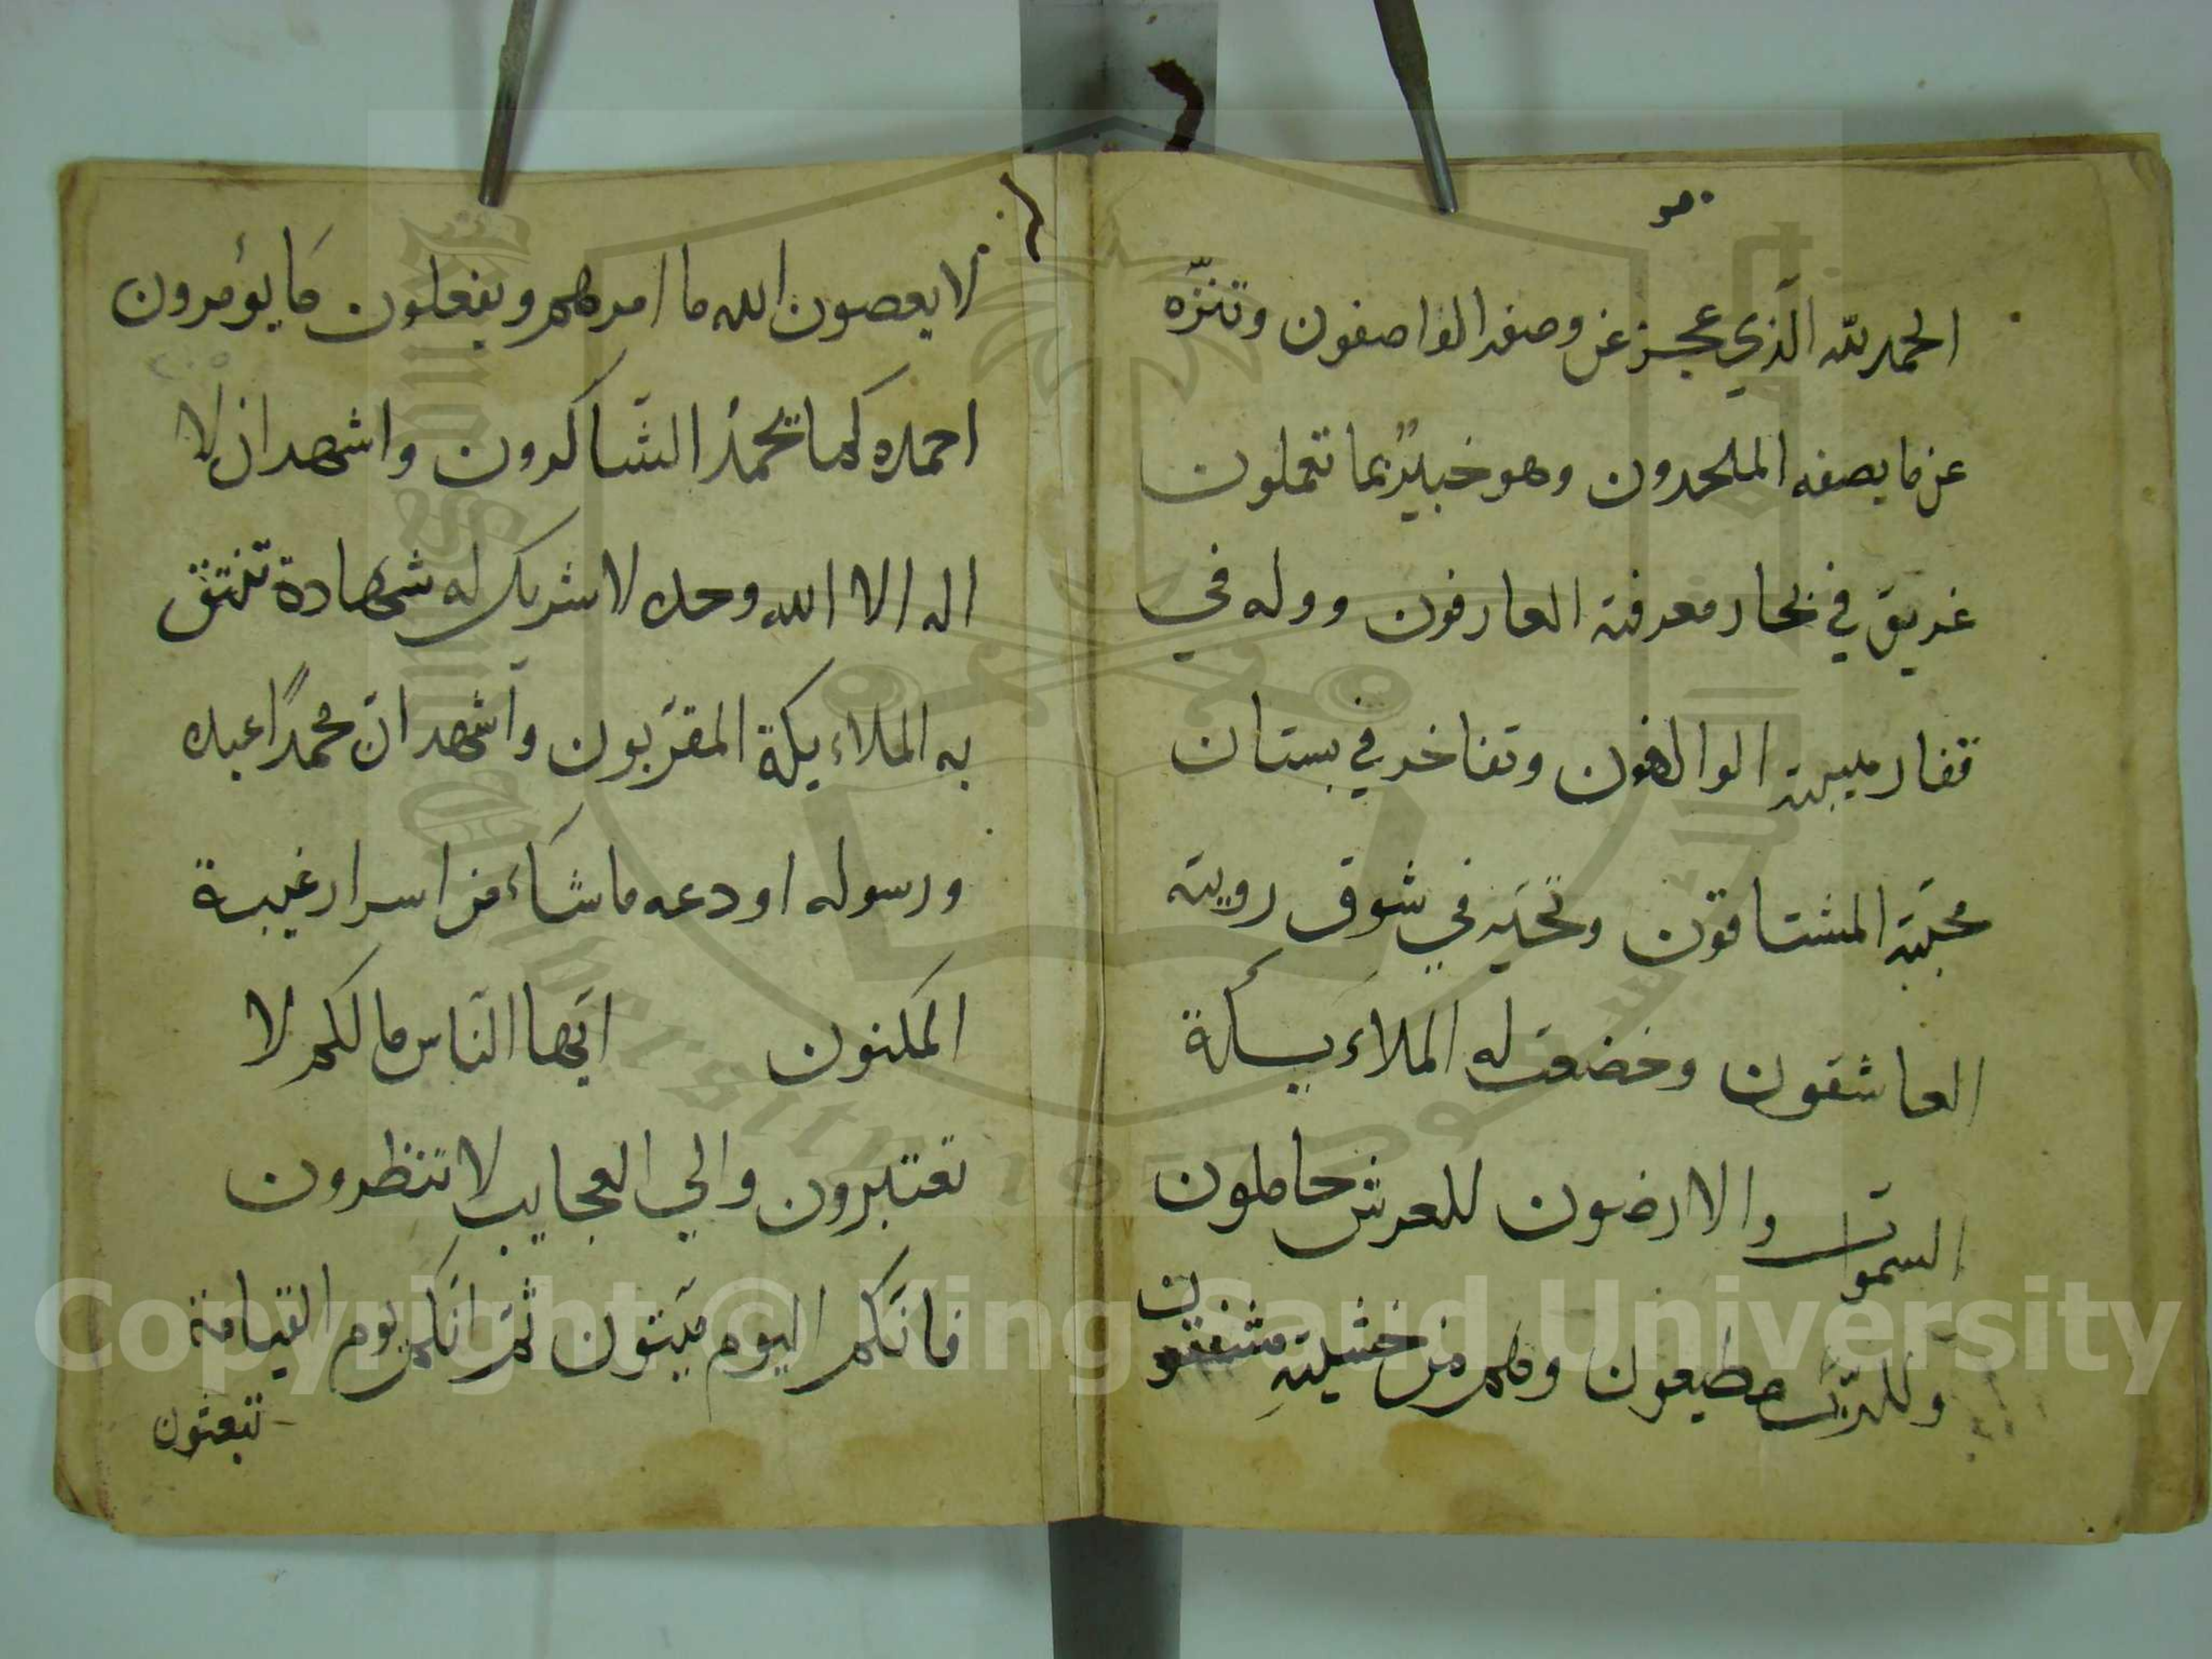 هو
الحمد لله الّذي عجز عن وصفه الواصفون وتنزّه
عن ما يصفه الملحدون وهو خبيرٌ بما تعملون
غريق في بحار معرفته العارفون ووله في
قفار هيبته الوالهون وتفاخر في بستان
محبّته المشتاقون وتحيّر في شوق رويته
العاشقون وخضعت له الملاءيكة
السموات والارضون للعرش حاملون
وللرّبّ مطيعون وهم من خشيته مشفقون
لا يعصون الله ما امرهم ويفعلون ما يؤمرون
احمده كما تحمدُ الشّاكرون واشهد ان لا
اله الا الله وحده لا شريك له شهادة
به الملاءيكة المقرّبون واشهد انّ محمدًا عبده
ورسوله اودعه ما شاء من اسرار غيبة
المكنون ايّها النّاس ما لكم لا
تعتبرون والي العجايب لا تنظرون
فانّكم اليوم ميّتون ثمّ انّكم يوم القيامة
تبعثون
Copyright © King Saud University